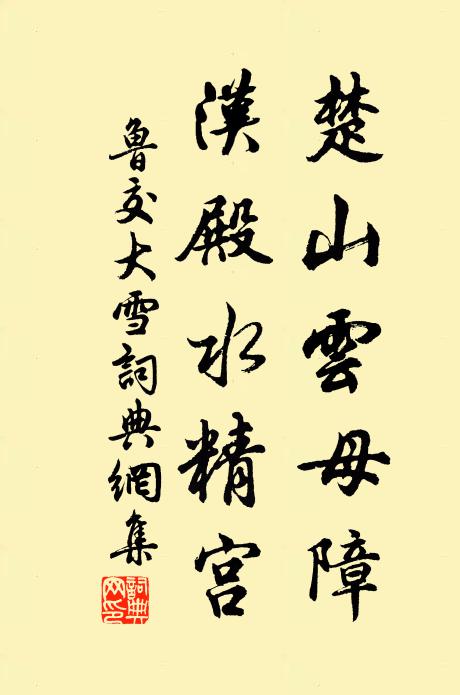 楚山雲母障
漢殿水精宮
魯交大雪詞典網集
詞典網印